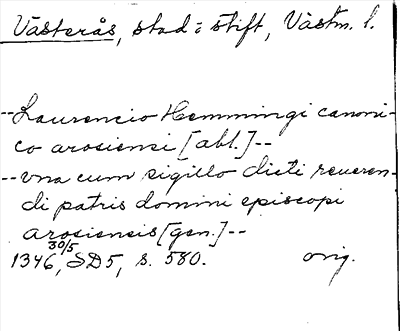 Västerås, stad o stift, Västm. l.
--Laurencio Hemmingi canoni-
co arosiensi [abl.]--
--vna cum sigillo dicti reueren-
di patris domini episcopi
arosiensis [gen.]--
1346, 30/5 SD5, s. 580. orig.